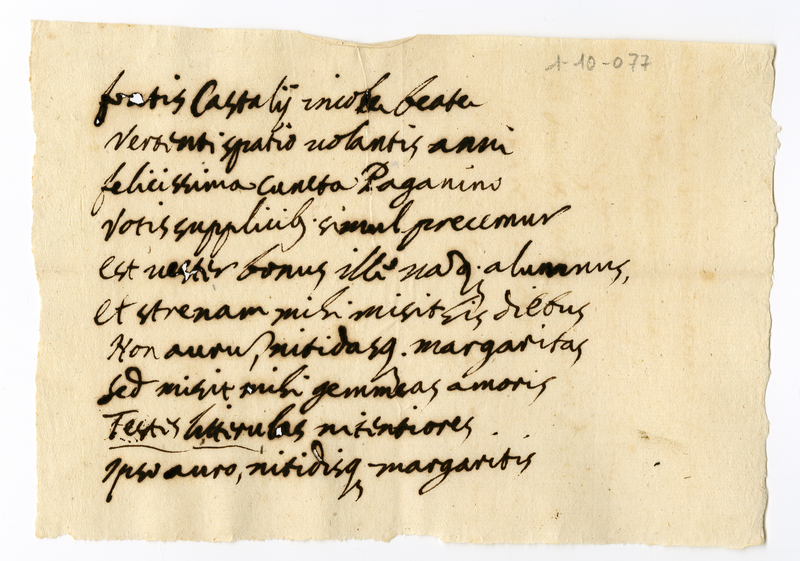 1-10-077
fontis Castalij incolae beatae
Vertenti spatio uolantis anni
felicissima cuncta Paganino
Votis supplicib. simul precemur
est uester bonus ille naq. alumnus,
et strenam mihi misit his diebus
Non auru, nitidasq. margaritas
sed misit mihi gemmeas amoris
Testis litterulas nitentiores
ipso auro, nitidisq margaritis